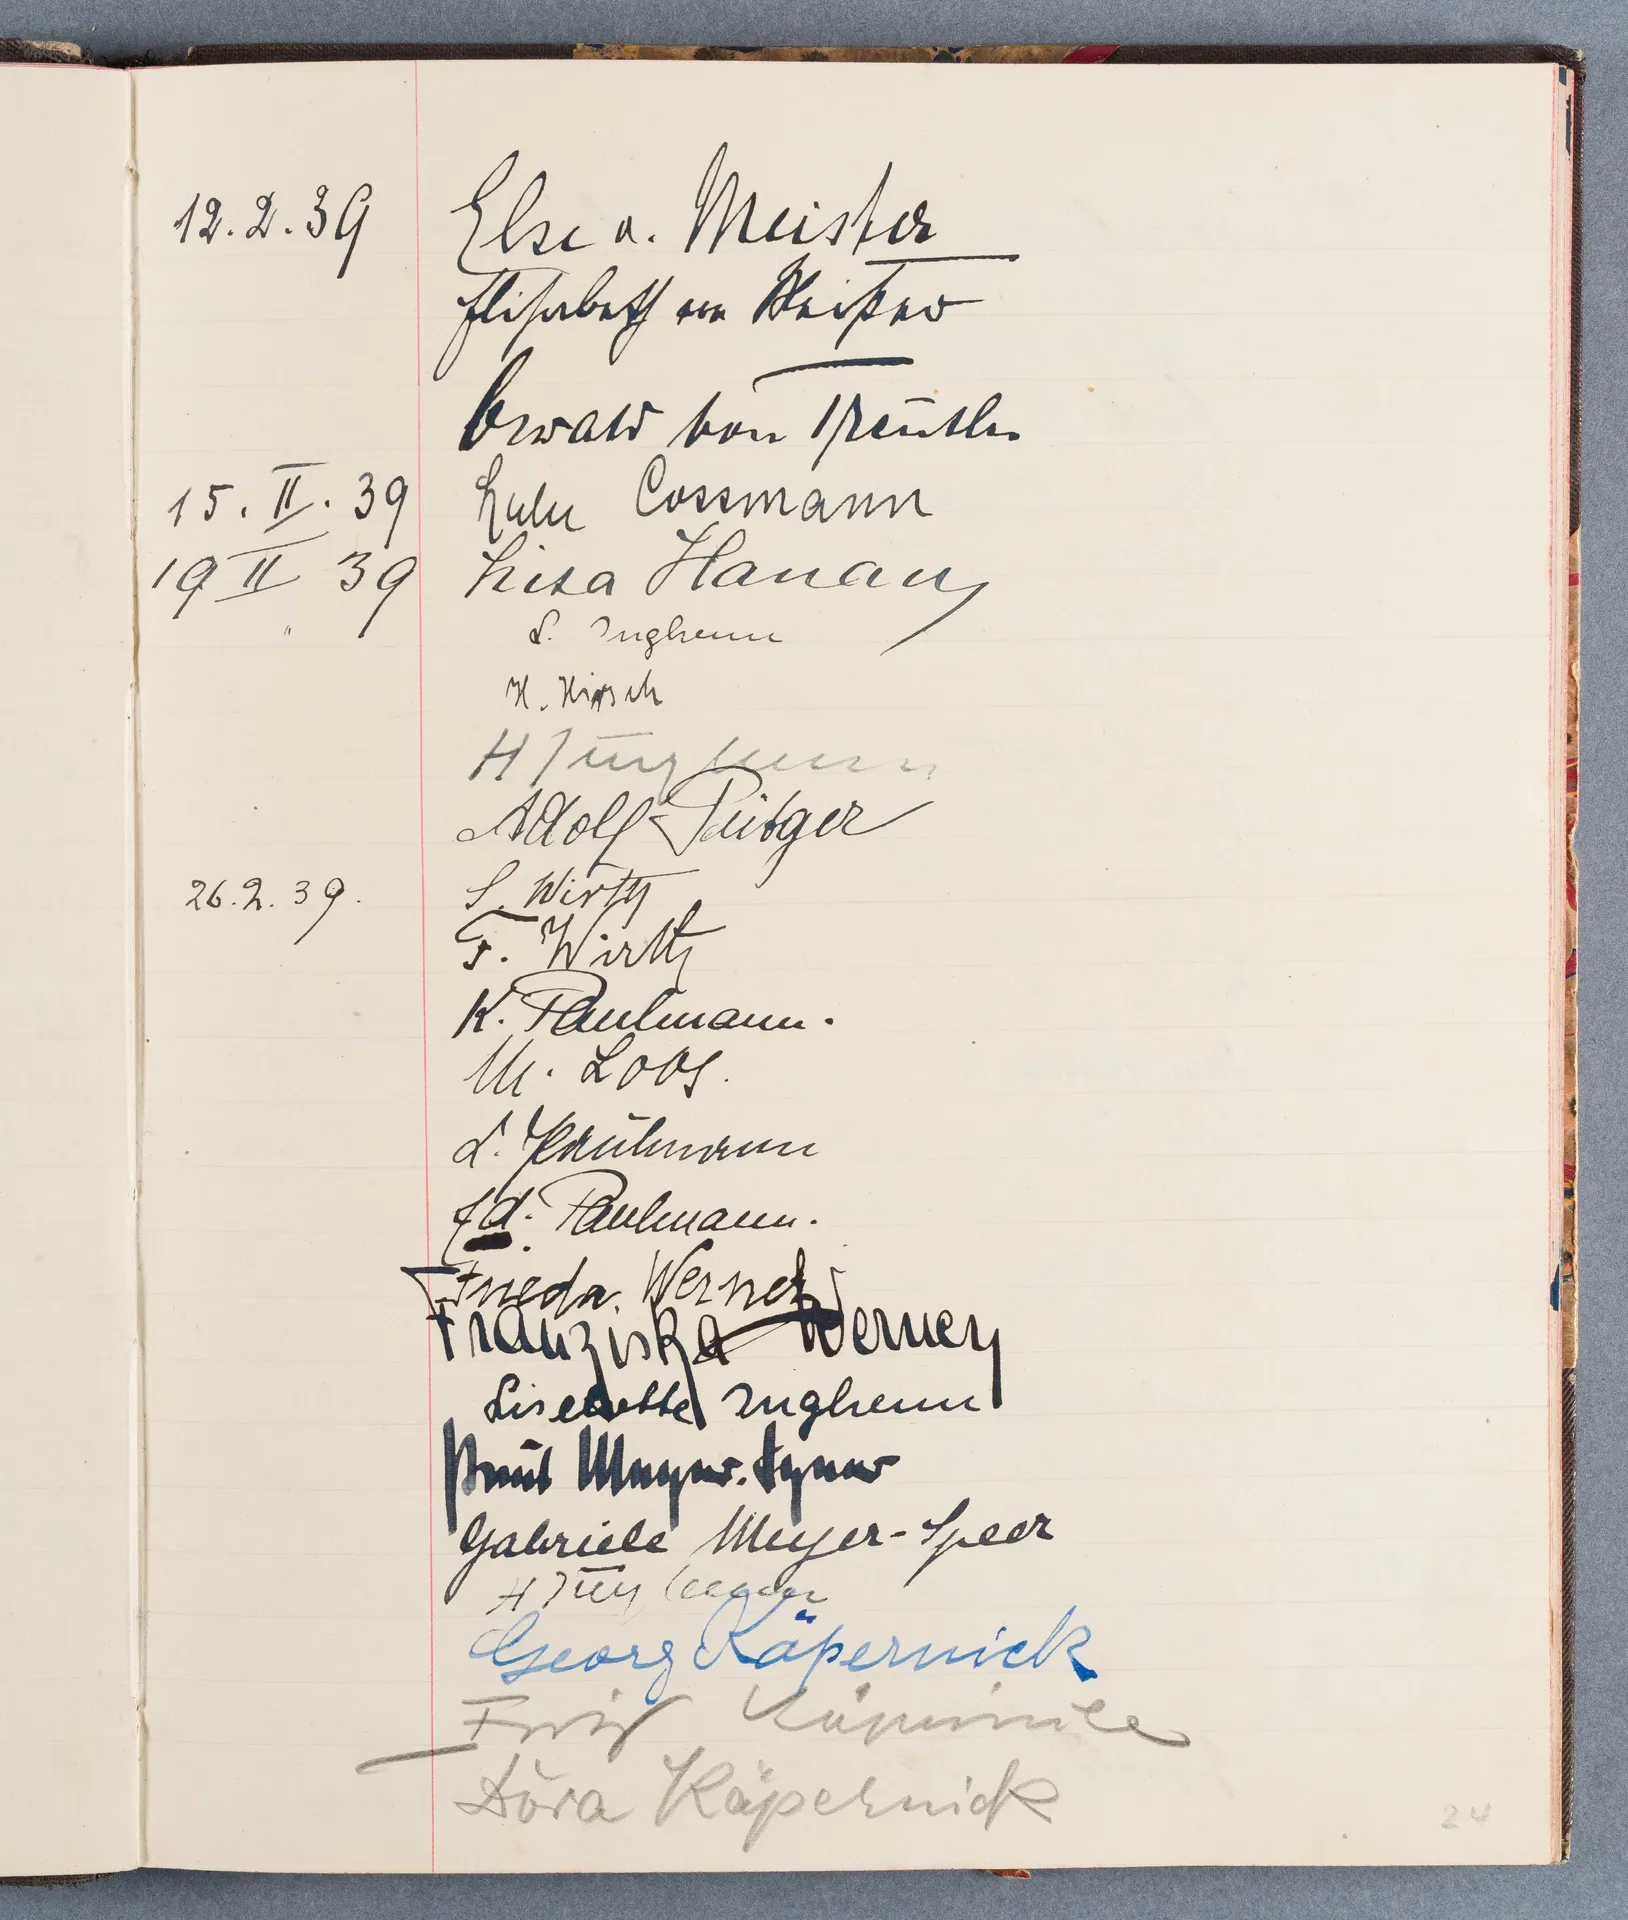 12.2.39 Else v. Meister
Elisabeth von Meister
Oswald von
15. II. 39 Lulu Cossmann
19 II 39 Lisa Hanau
" L. Inghenn
H. Hirsch
H
Adolf Rütger
26.2.39. S. Wirth
F. Wirth
K. Paulmann.
M. Loos.
L. Paulmann
Ed. Paulmann.
Frieda Werner
Franziska Werner
Liselotte Inghenn
Paul Meyer-Speer
Gabriele Meyer-Speer
H
Georg Käpernick
Käpernick
Dora Käpernick
24